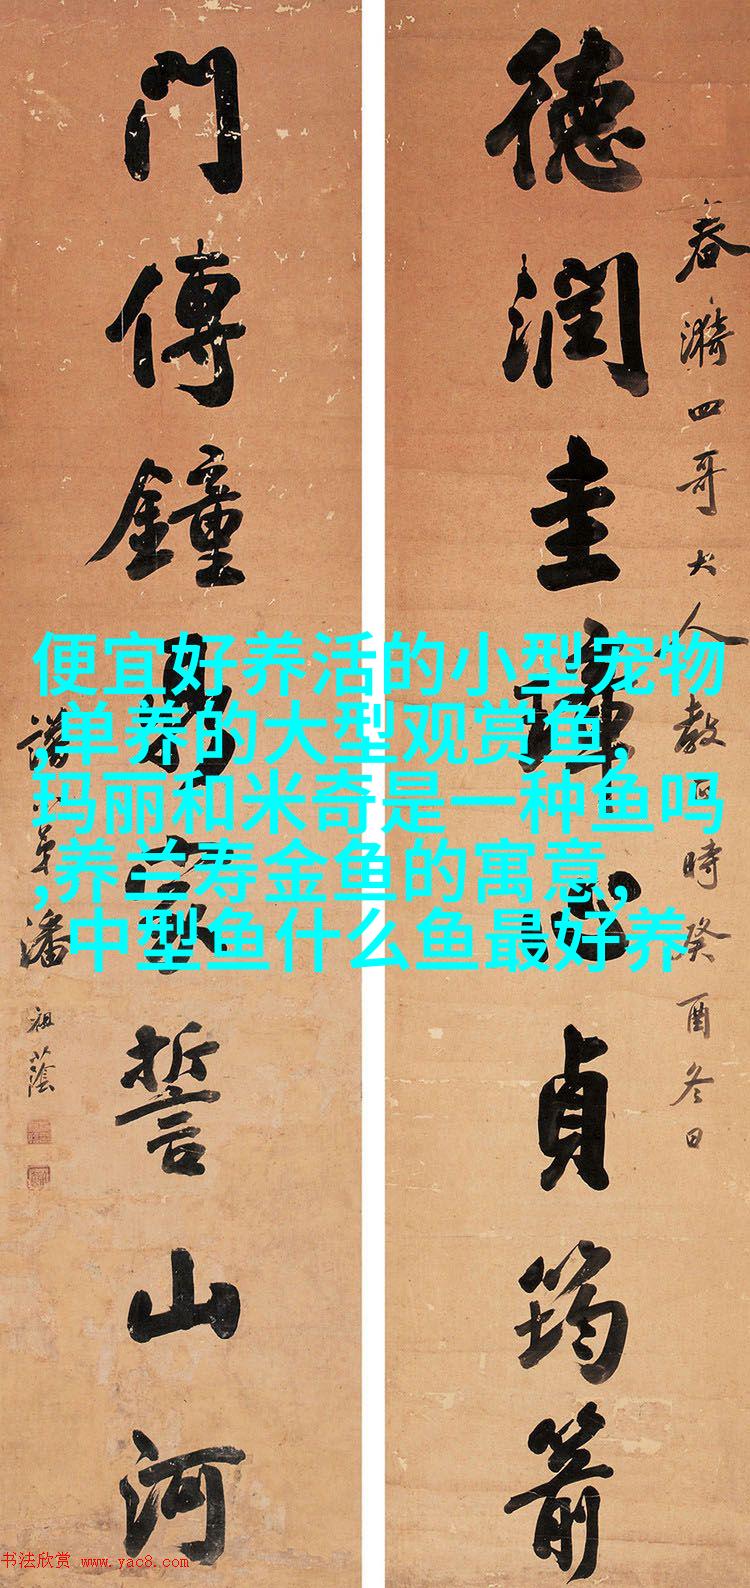 春漪四哥大人教正時癸酉冬日
德潤圭璋心貞筠箭
門傳鐘鼎家誓山河
譜弟潘祖蔭
便宜好养活的小型宠物
,单养的大型观赏鱼,
玛丽和米奇是一种鱼吗
,养兰寿金鱼的寓意,
中型鱼什么鱼最好养
书法欣赏 www.yac8.com